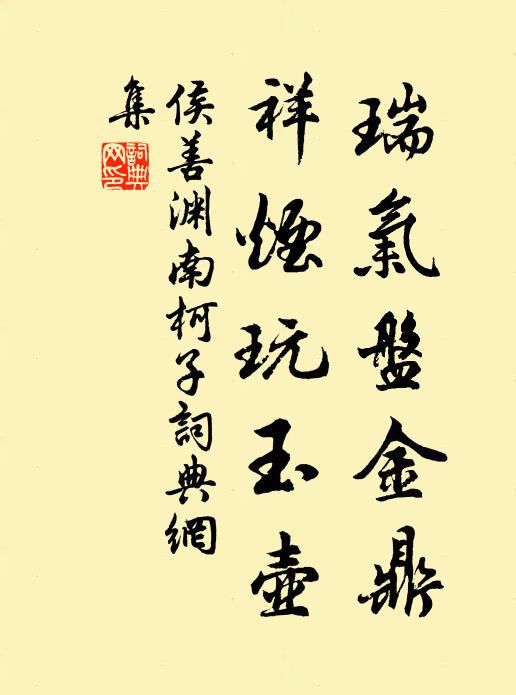 瑞氣盤金鼎
祥煙玩玉壺
侯善渊南柯子詞典網
集
詞典網印